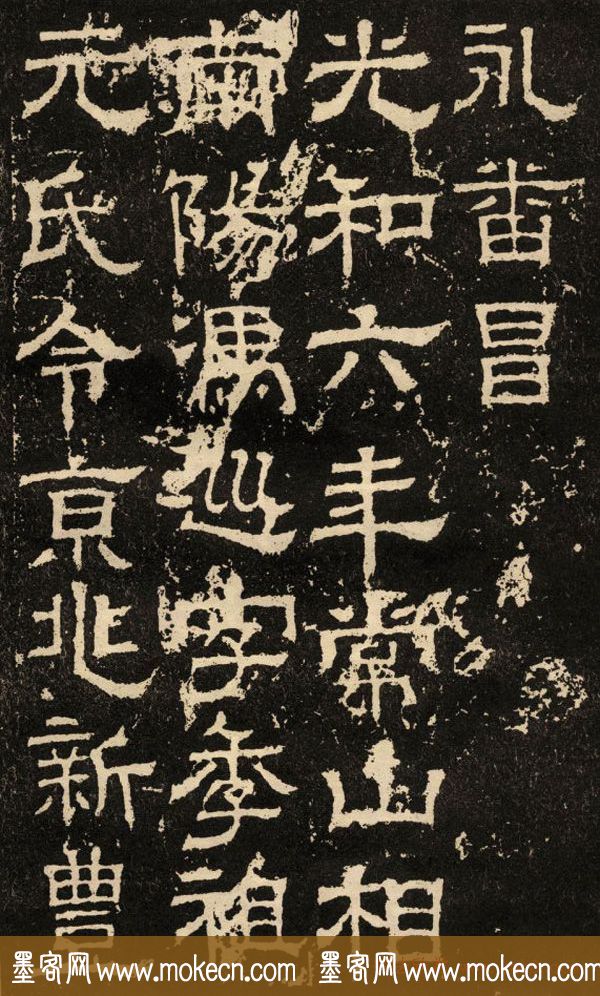 永番昌
光和六年常山相
南陽馮巡字季祖
元氏令京兆新豊
墨客网 www.mokecn.com 墨客网 www.mokecn.com